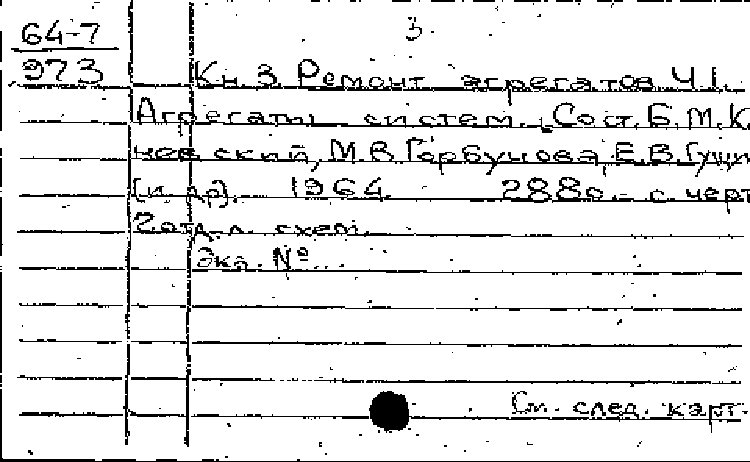 64-7
973
3
Кн. 3. Ремонт агрегатов. Ч. 1.
Агрегаты систем. Сост. Б. М. К
невский, М. В. Горбунова, Е. В. Гущи
[и др.]. 1964. 288 с. с черт
2 отд. л. схем.
Экз. №...
См. след. карт.